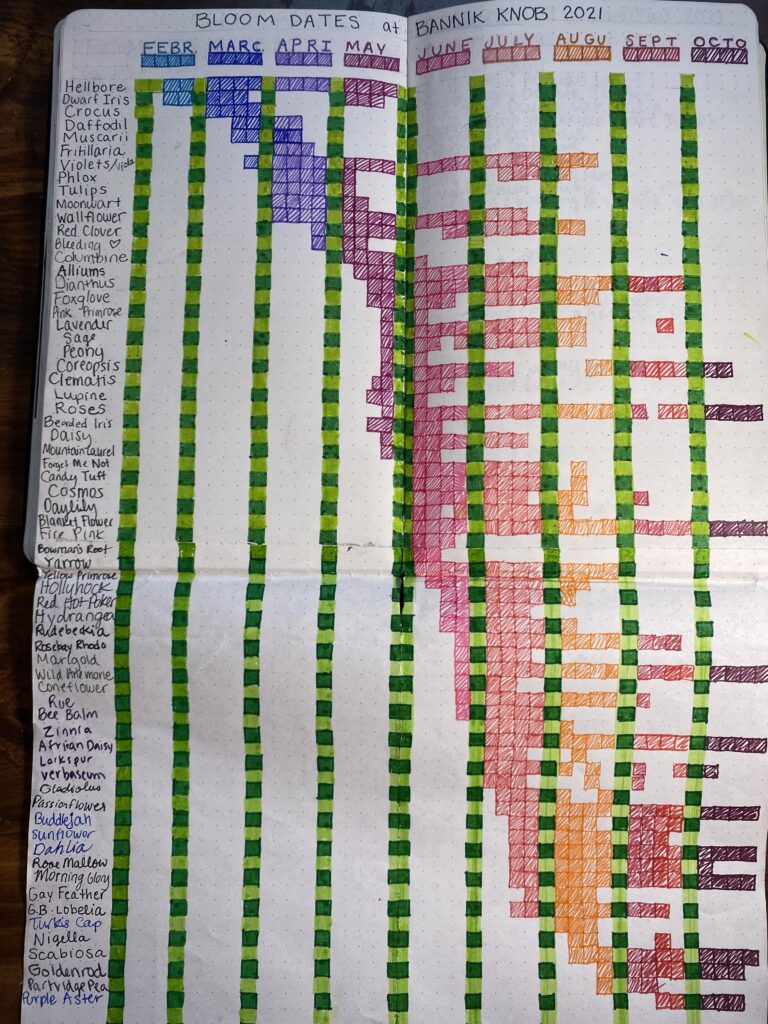 BLOOM DATES at BANNIK KNOB 2021
FEBR MARC APRI MAY JUNE JULY AUGU SEPT OCTO
Hellbore
Dwarf Iris
Crocus
Daffodil
Muscarii
Frihillaria
Violets/Viola
Phlox
Tulips
Moonwart
Wallflower
Red Clover
Bleeding ♡
Columbine
Alliums
Dianthus
Foxglove
Pink Primrose
Lavender
Sage
Peony
Coreopsis
Clematis
Lupine
Roses
Bearded Iris
Daisy
Mountain Laurel
Forget Me Not
Candy Tuft
Cosmos
Daylily
Blanket Flower
Fire Pink
Bowman's Root
Yarrow
Yellow Primrose
Hollyhock
Red Hot Poker
Hydrangea
Rudebeckia
Rosebay Rhodo
Marigold
Wild Anemone
Coneflower
Rue
Bee Balm
Zinnia
African Daisy
Larkspur
Verbaseum
Gladiolus
Passionflower
Buddlejah
Sunflower
Dahlia
Rose Mallow
Morning Glory
Gay Feather
G.B. Lobelia
Turk's Cap
Nigella
Scabiosa
Goldenrod
Partridge Pea
Purple Aster